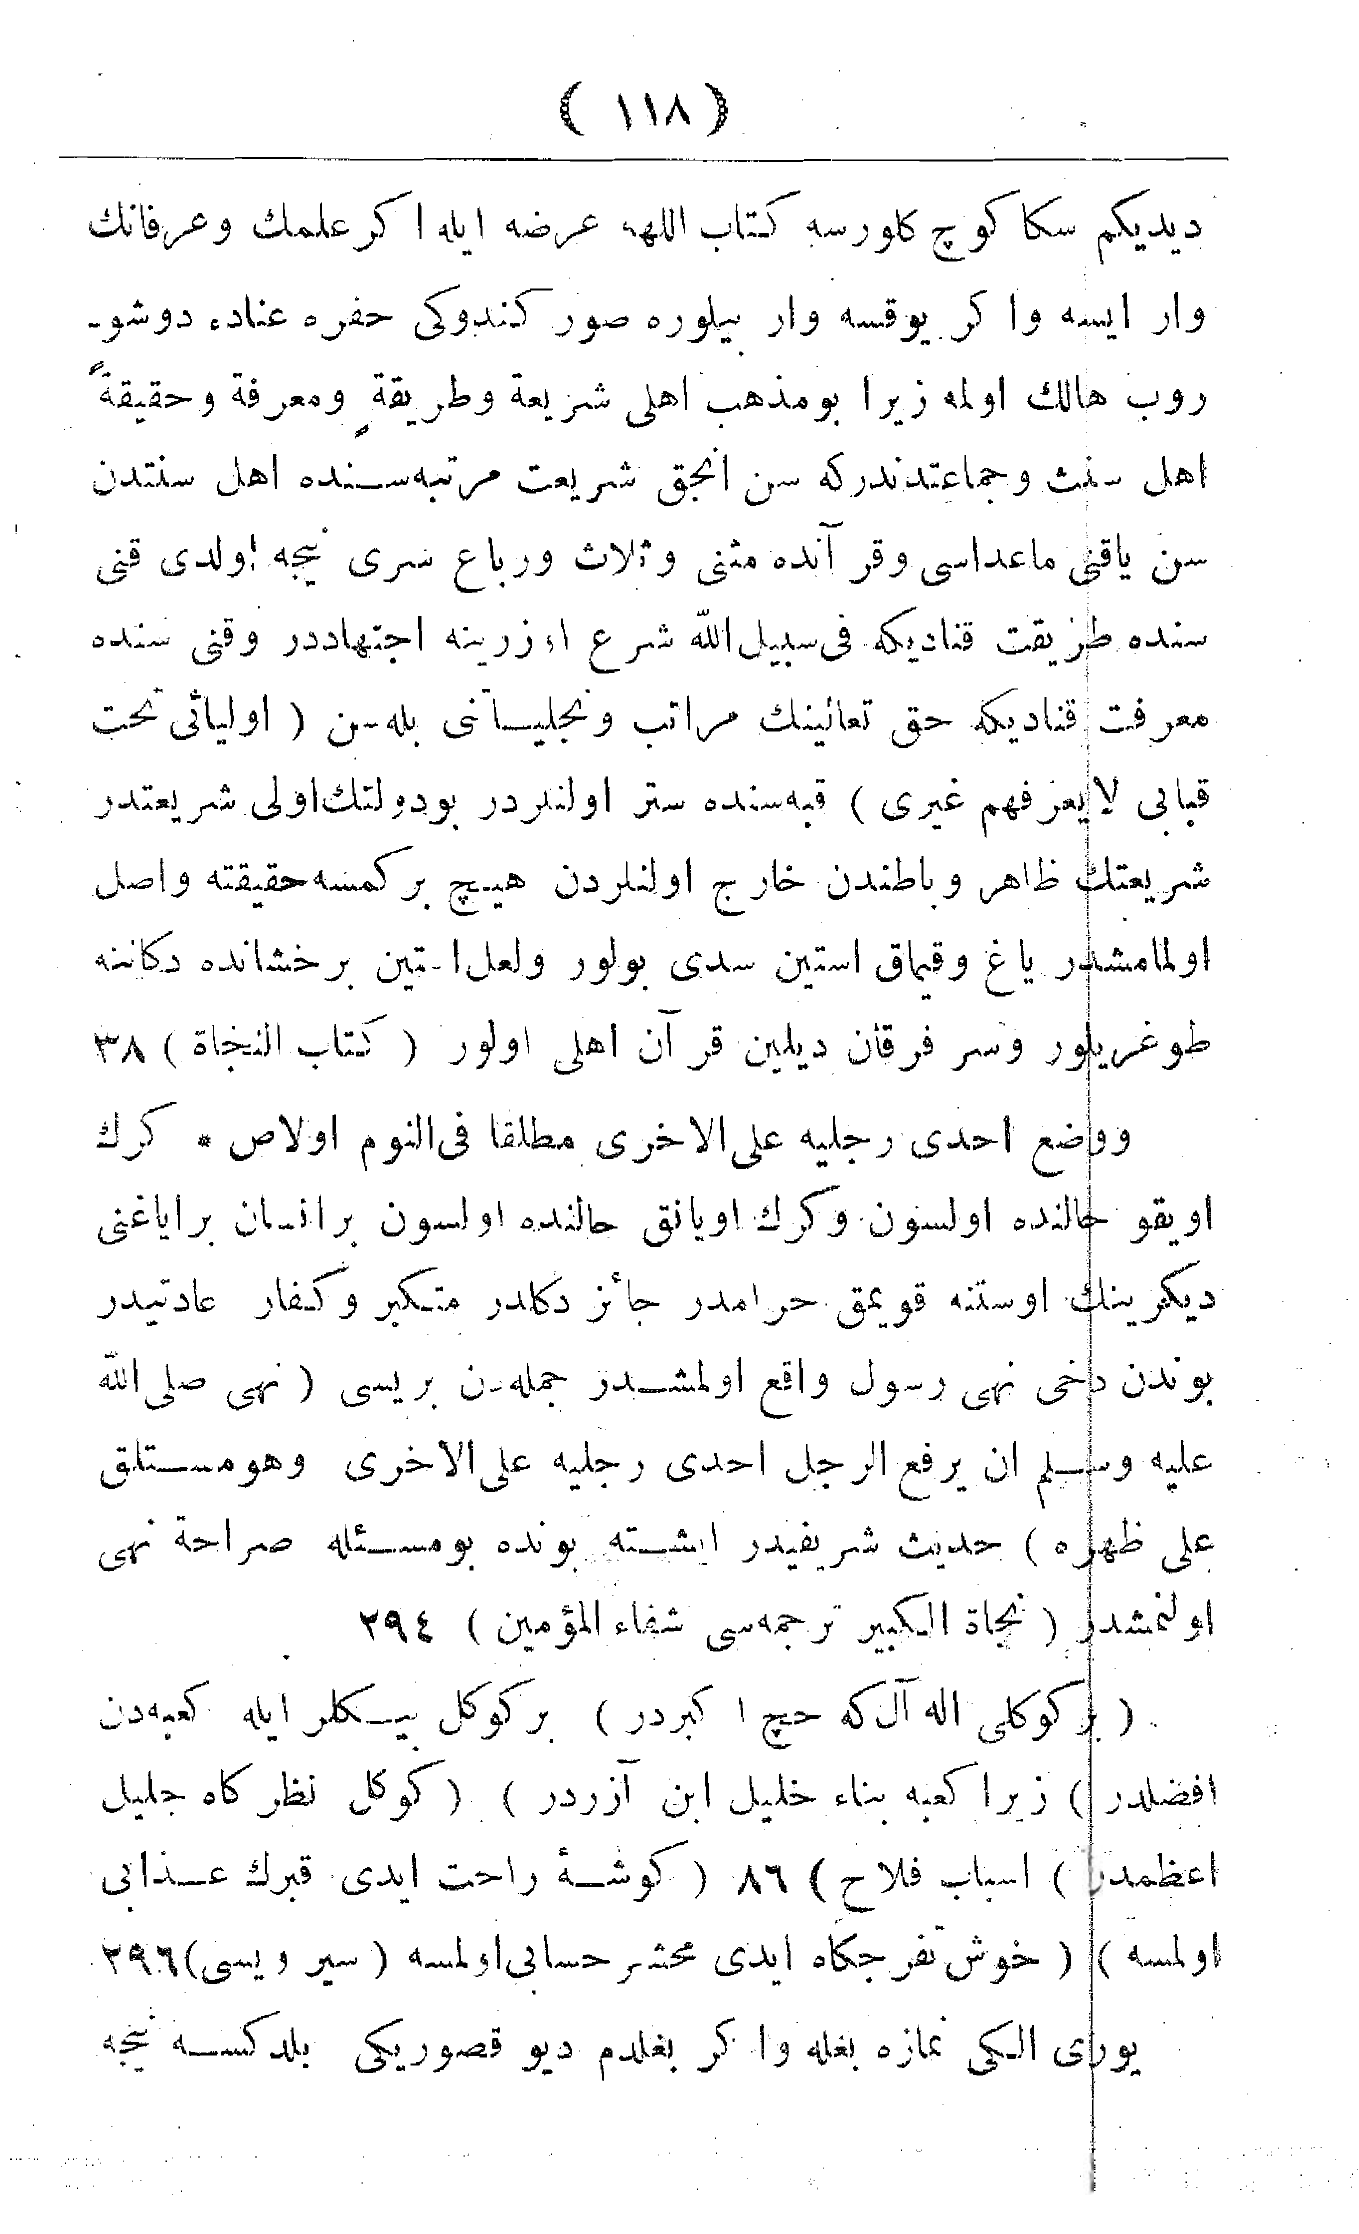 ( ١١٨ )
ديديكم سكا كوچ كلورسه كتاب اللهه عرضه ايله ا كر علمك وعرفانك
وار ايسه وا كر يوقسه وار بيلوره صور كندوكى حفره عناده دوشو-
روب هالك اولمه زيرا بومذهب اهلى شريعة وطريقةٍ ومعرفة وحقيقةً
اهل سنت وجماعتدندركه سن انجق شريعت مرتبه‌سنده اهل سنتدن
سن ياقنى ماعداسى وقر آنده مثنى وثلاث ورباع سرى نيجه اولدى قنى
سنده طريقت قناديكه فى‌سبيل‌الله شرع اوزرينه اجتهاددر وقنى سنده
معرفت قناديكه حق تعالينك مراتب وتجلياتنى بله‌سن ( اوليائى تحت
قبابى لايعرفهم غيرى ) قبه‌سنده ستر اولنلردر بودولتك‌اولى شريعتدر
شريعتك ظاهر وباطندن خارج اولنلردن هيچ بر كمسه‌حقيقته واصل
اولمامشدر ياغ وقيماق استين سدى بولور ولعل‌استين برخشانده دكاننه
طوغريلور وسر فرقان ديلين قر آن اهلى اولور ( كتاب النخاة ) ٣٨
ووضع احدى رجليه على‌الاخرى مطلقا فى‌النوم اولاص * كرك
اويقو حالنده اولسون وكرك اويانق حالنده اولسون برانسان براياغنى
ديكرينك اوستنه قويمق حرامدر جائز دكلدر متكبر وكفار عادتيدر
بوندن دخى نهى رسول واقع اولمشدر جمله‌دن بريسى ( نهى صلى‌الله
عليه وسلم ان يرفع الرجل احدى رجليه على‌الاخرى وهومستلق
على ظهره ) حديث شريفيدر ايشته بونده بومسئله صراحة نهى
اولنمشدر ( نجاة الكبير ترجمه‌سى شفاء المؤمين ) ٢٩٤
( بركوكلى اله آل‌كه حج ا كبردر ) بركوكل بيكلر ايله كعبه‌دن
افضلدر ) زيرا كعبه بناء خليل ابن آزردر ) ( كوكل نظركاه جليل
اعظمدر ) اسباب فلاح ) ٨٦ ( كوشهٔ راحت ايدى قبرك عذابى
اولمسه ) ( خوش تفرجكاه ايدى محشر حسابى‌اولمسه ( سير ويسى)٢٩٦
يورى الكى نمازه بغله وا كر بغلدم ديو قصوريكى بلدكسه نيجه